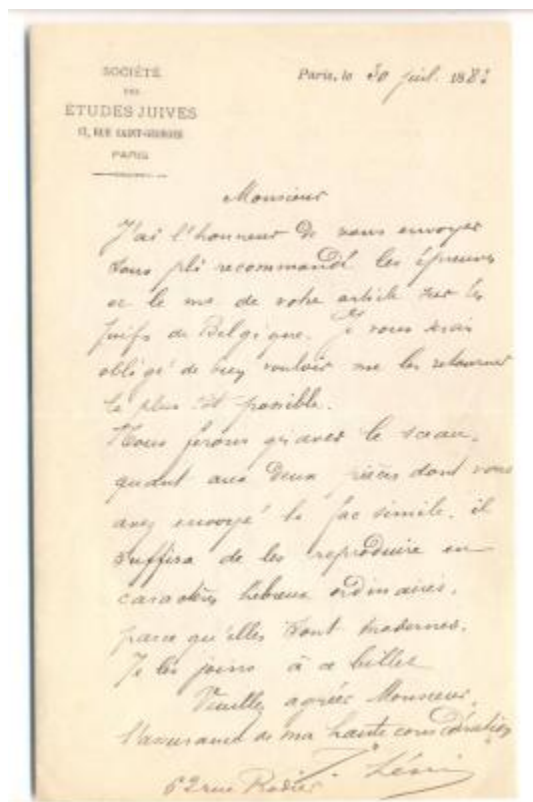 SOCIÉTÉ
DES
ÉTUDES JUIVES
17, RUE SAINT-GEORGES
PARIS
Paris, le 30 juil. 1882
Monsieur
J'ai l'honneur de vous envoyer
sous pli recommandé les épreuves
et le ms de votre article sur les
Juifs de Belgique. Je vous serais
obligé de bien vouloir me les retourner
le plus tôt possible.
Nous ferons graver le sceau,
quant aux deux pièces dont vous
avez envoyé le fac simile, il
suffira de les reproduire en
caractères hébreux ordinaires,
parce qu'elles sont modernes.
Je les joins à ce billet
Veuillez agréer Monsieur,
l'assurance de ma haute considération
Lévi
62 rue Rodier